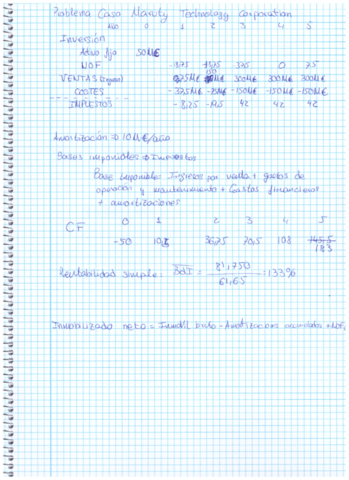 Problema Caso Maruty Technology Corporation
Año 0 1 2 3 4 5
Inversión
Activo fijo 50M€
NOF 0 75
VENTAS 300M€ 300M€ 300M€
COSTES -150M€ -150M€ -150M€
IMPUESTOS 42 42 42
Amortización ⇒ 10 M€/año
Bases imponibles ⇒ Impuestos
Base Imponible: Ingresos por venta + gastos de
operación y mantenimiento + Gastos financieros
+ amortizaciones
0 1 2 3 4 5
CF
-50 108 183
Rentabilidad simple: = 81,750 / 61,65 = 133%
Inmovilizado neto = Inmovil bruto - Amortizacion acumulada + NOF